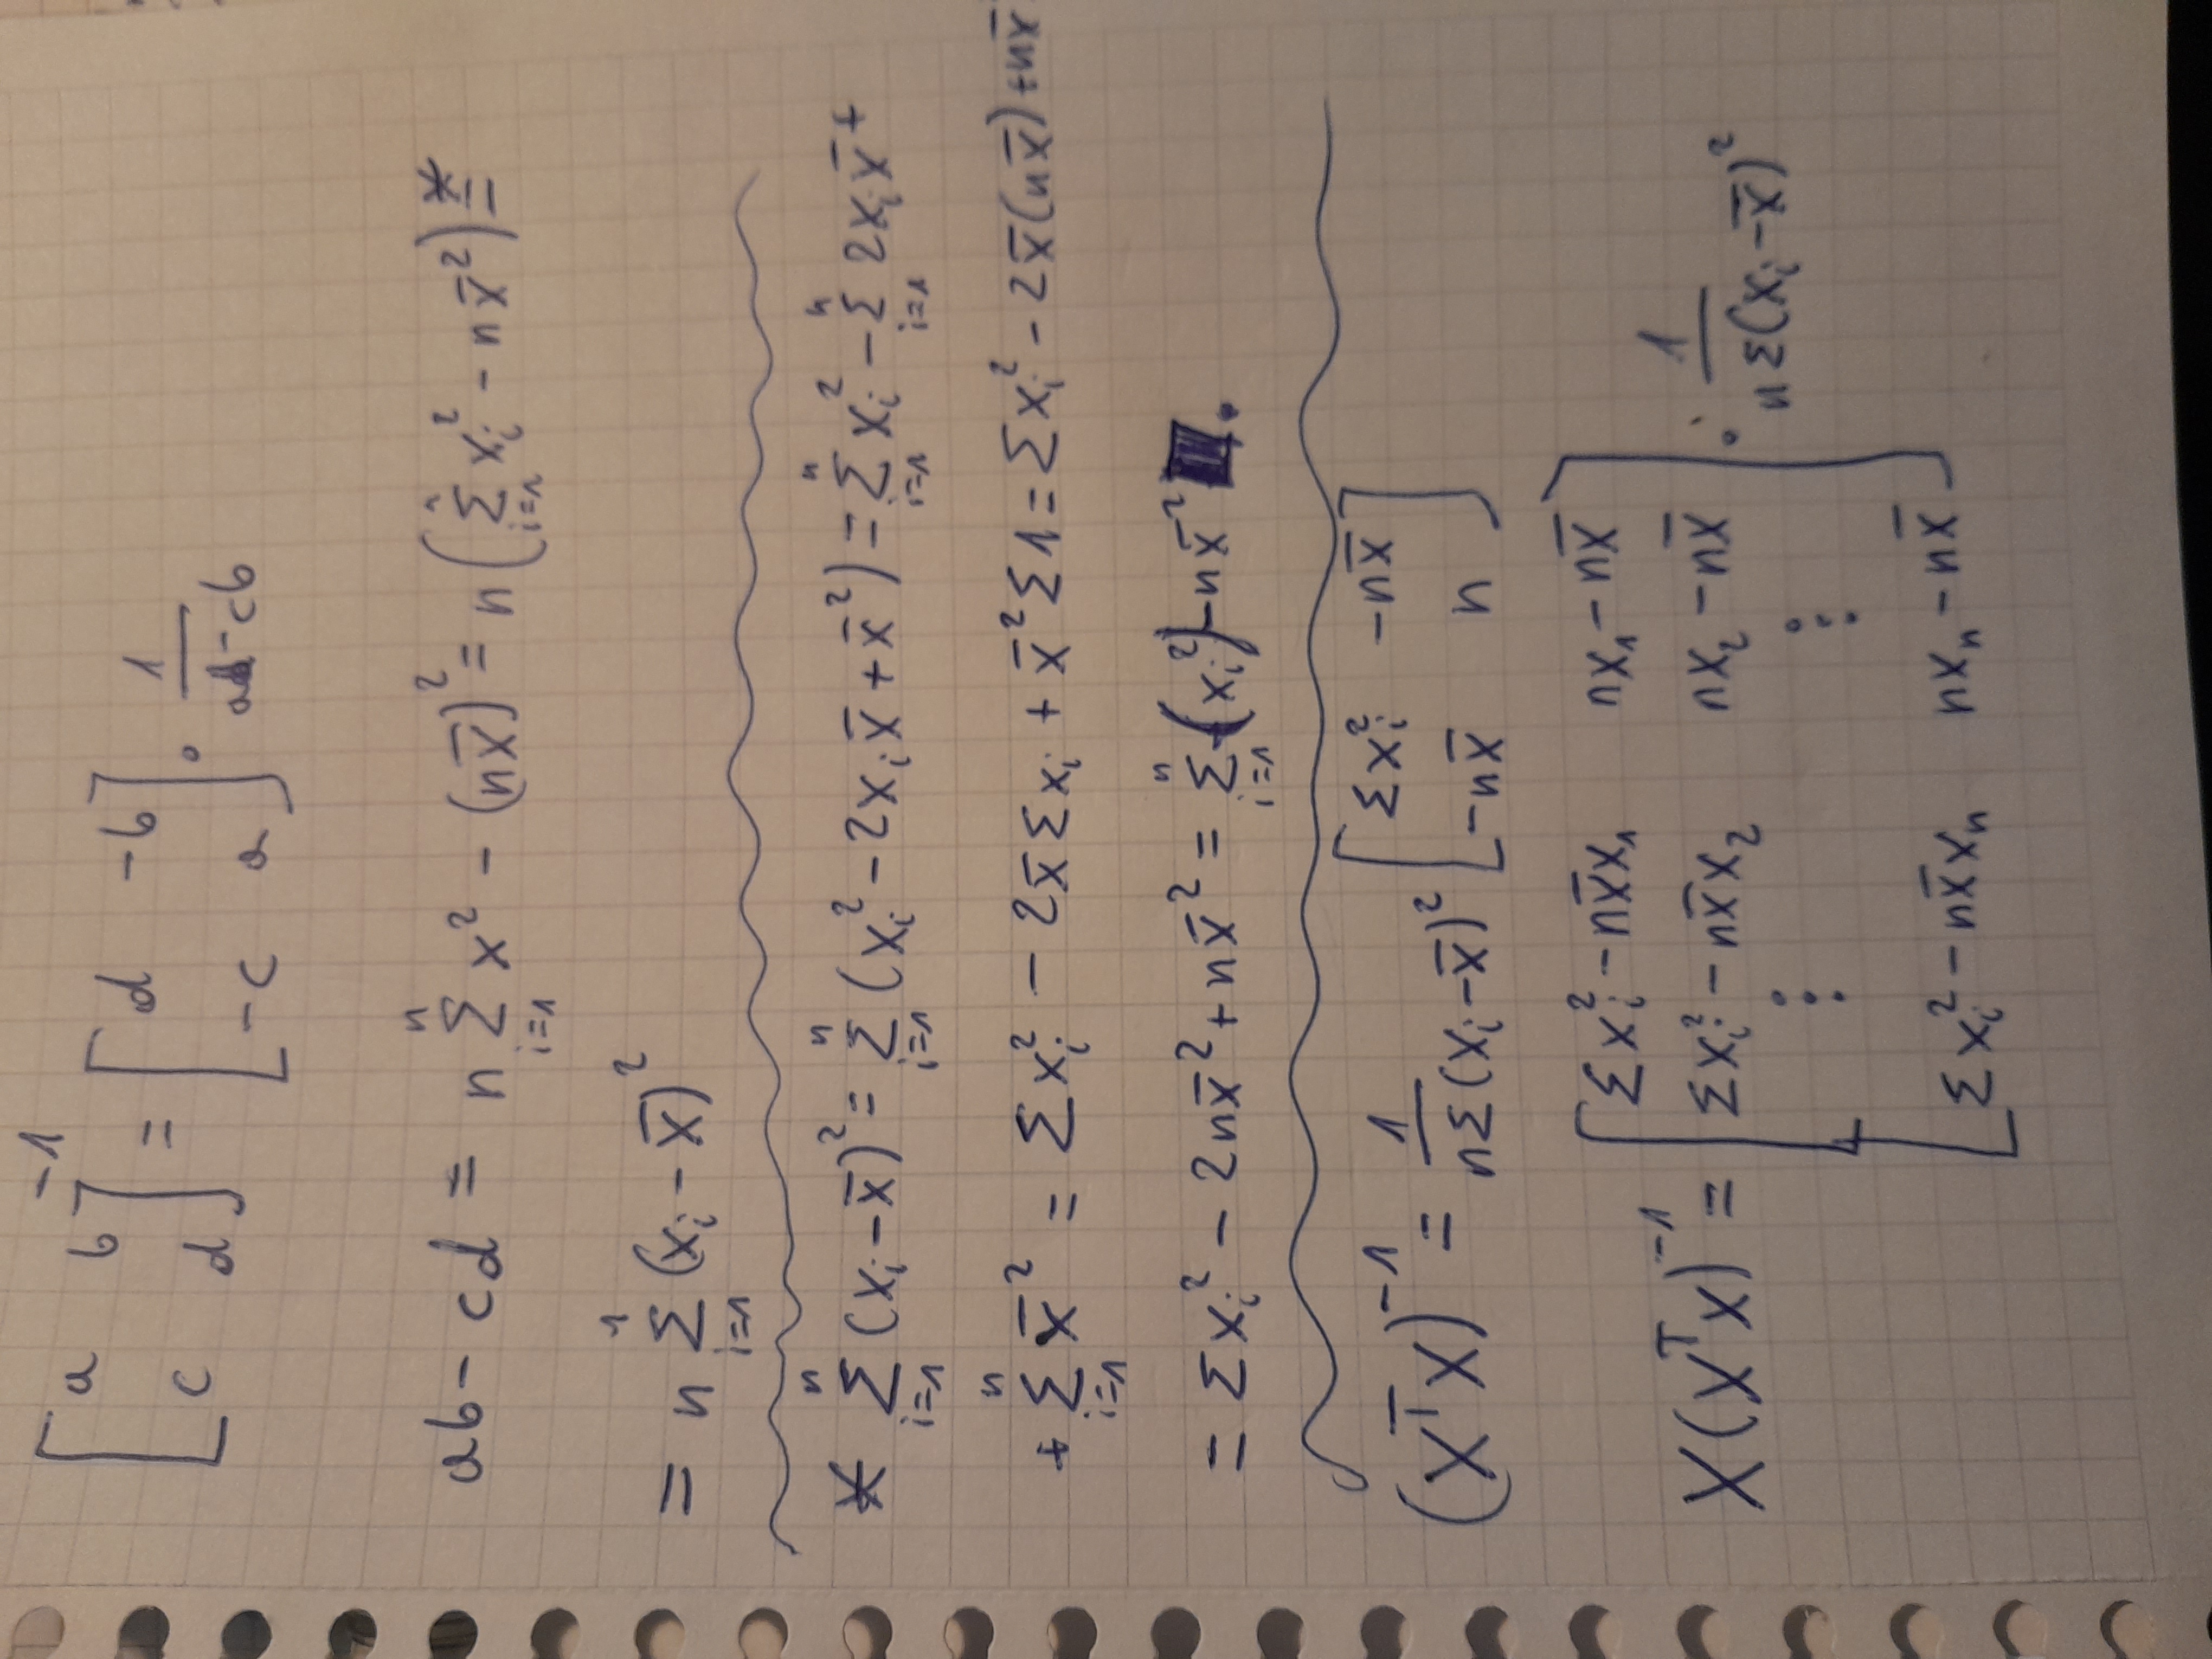 [a b; c d]^{-1} = [d -b; -c a] · 1/(ad-cb)
ab - cd = n Σ_{i=1}^{n} x² - (n x̄)² = n (Σ_{i=1}^{n} x_i² - n x̄²) *=
= n Σ_{i=1}^{n} (x_i - x̄)²
* Σ_{i=1}^{n} (x_i - x̄)² = Σ_{i=1}^{n} (x_i² - 2x_i x̄ + x̄²) = Σ_{i=1}^{n} x_i² - Σ_{i=1}^{n} 2x_i x̄ +
+ Σ_{i=1}^{n} x̄² = Σ x_i² - 2x̄ Σ x_i + x̄² Σ 1 = Σ x_i² - 2x̄(n x̄) + n x̄
= Σ x_i² - 2n x̄² + n x̄² = Σ_{i=1}^{n} (x_i²) - n x̄² ■.
(X^T X)^{-1} = 1/(n Σ (x_i - x̄)²) [Σ x_i² -n x̄; -n x̄ n]
X(X^T X)^{-1} = [Σ x_i² - n x̄ x_1 n x_1 - n x̄; Σ x_i² - n x̄ x_2 n x_2 - n x̄; ⋮ ⋮; Σ x_i² - n x̄ x_n n x_n - n x̄] · 1/(n Σ (x_i - x̄)²)